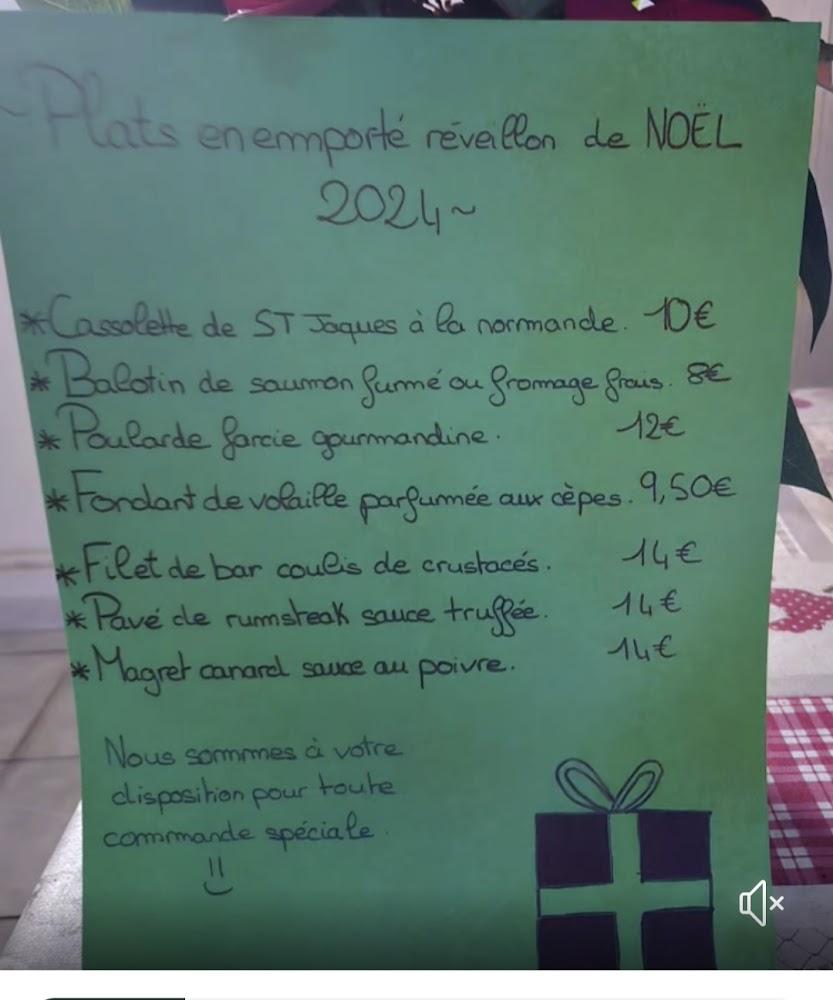 ~Plats enemporté réveillon de NOËL
2024~
*Cassolette de ST Jaques à la normande. 10€
*Balotin de saumon fumé ou fromage frais. 8€
*Poularde farcie gourmandine. 12€
*Fondant de volaille parfumée aux cèpes. 9,50€
*Filet de bar coulis de crustacés. 14€
*Pavé de rumsteak sauce truffée. 14€
*Magret canard sauce au poivre. 14€
Nous sommes à votre
disposition pour toute
commande spéciale.